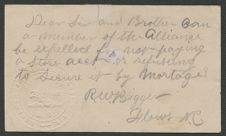 Dear Sir and Brother Can
a member of the Alliance
be expelled for not paying
a Store acct or refusing
to Secure it by Mortage
R W Bigger
Flows N.C